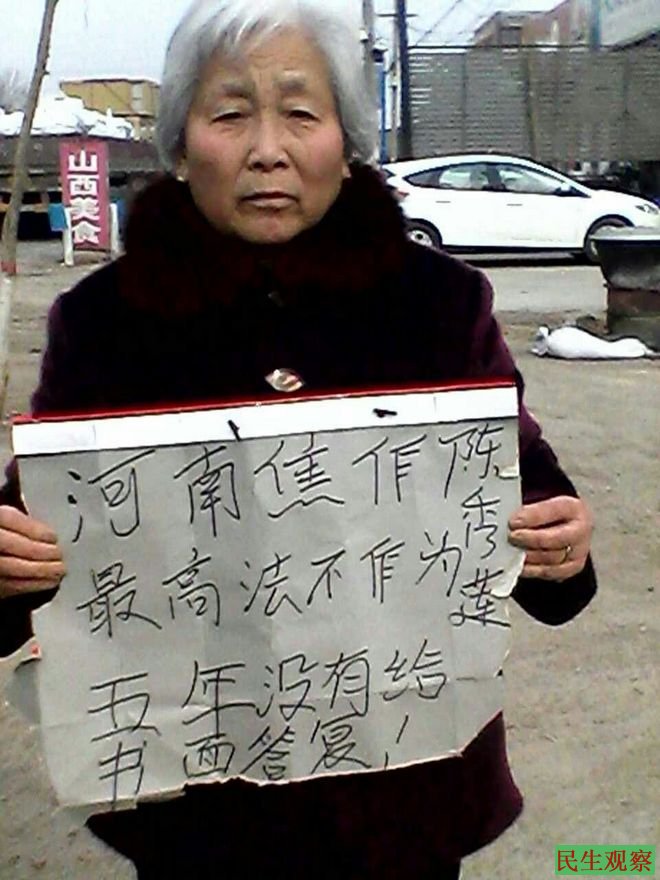 山西美食
河南焦作陈秀莲
最高法不作为
五年没有给
书面答复！
民生观察